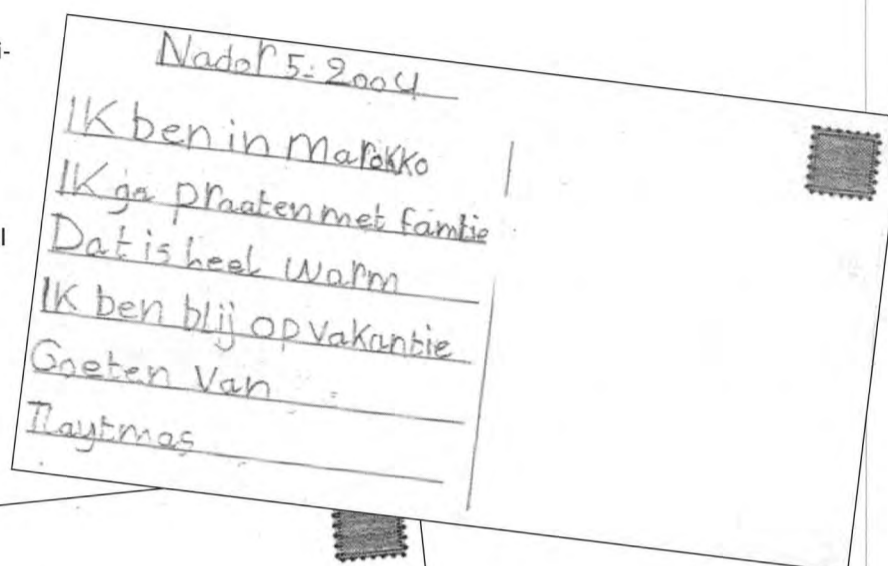 i-
l
Nador 5-2004
Ik ben in Marokko
Ik ga praaten met famtie
Dat is heel warm
Ik ben blij op vakantie
Goeten van